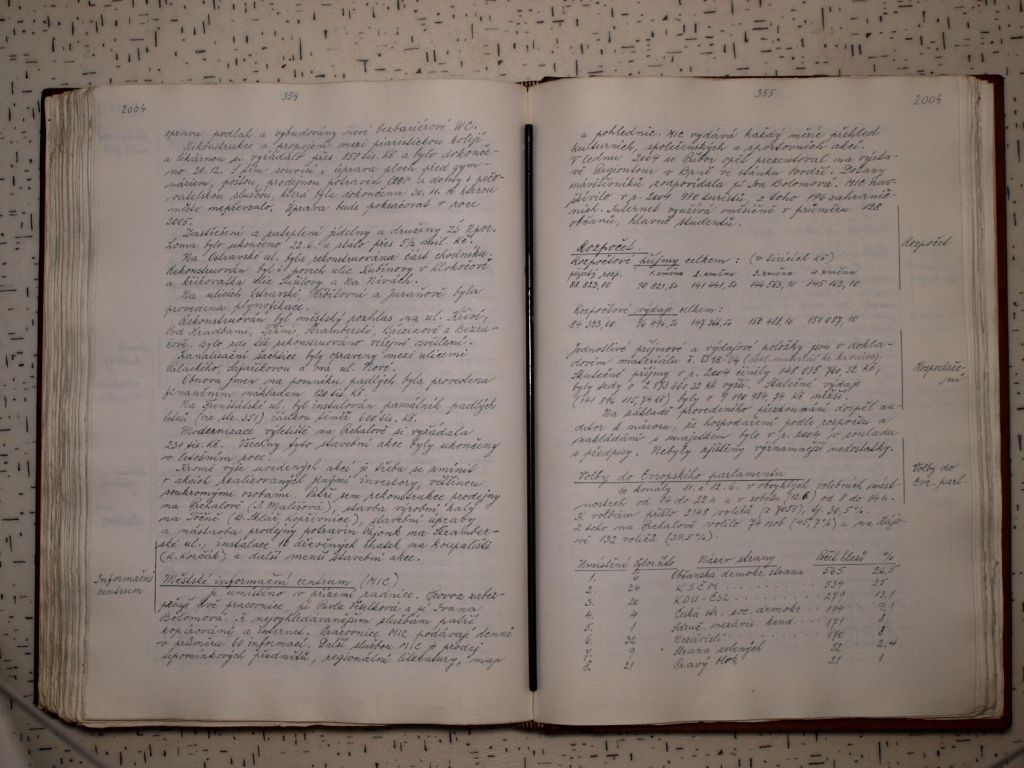 2004
354
oprava podlah a vybudovány nové bezbariérové WC.
Rekonstrukce a propojení mezi piaristickou kolejí
a lékárnou si vyžádalo přes 850 tis. Kč a bylo dokonče-
no 20.12. S tím souvisí i úprava ploch před gym-
náziem, poštou, prodejnou potravin a domy s pečo-
vatelskou službou, která byla dokončena 30.11. a kterou
město nepřevzalo. Úprava bude pokračovat v roce
2005.
Zastřešení a zateplení jídelny a družiny ZŠ Npor.
Loma bylo ukončeno 22.6. a stálo přes 5 1/2 mil. Kč.
Na Ostravské ul. byla rekonstruována část chodníku.
Rekonstruován byl i povrch ulic Dubinovy v Klokočově
a křižovatka ulic Lušilovy a Na Nivách.
Na ulicích Ostravské, Hřbitovní a Juraňově byla
provedena plynofikace.
Rekonstruován byl městský rozhlas na ul. Křivé,
Pod Hradbami, Tržní, Štramberské, Březinově a Bezru-
čově. Bylo zde též rekonstruováno veřejné osvětlení.
Kanalizační šachtice byly opraveny mezi ulicemi
Palackého, Šafaříkovou a na ul. Nové.
Obnova jmen na pomníku padlých byla provedena
finančním nákladem 120 tis. Kč.
Na Frenštátské ul. byl instalován památník padlých
letců (na str. 351) částkou téměř 600 tis. Kč.
Modernizace výletiště na Prchalově si vyžádala
231 tis. Kč. Všechny tyto stavební akce byly ukončeny
v letošním roce.
Kromě výše uvedených akcí je třeba se zmínit
o akcích realizovaných jinými investory, většinou
soukromými osobami. Patří sem rekonstrukce prodejny
na Prchalově (J. Mališová), stavba výrobní haly
na Točně (D. Klár Kopřivnice), stavební úpravy
a nadstavba prodejny potravin Hajonk na Štramber-
ské ul., instalace 10 dřevěných chatek na koupališti
(R. Kočvák) a další menší stavební akce.
Informační
centrum
Městské informační centrum (MIC)
je umístěno v přízemí radnice. Provoz zabez-
pečují dvě pracovnice, pí Pavla Všetková a pí Ivana
Bolomová. K nejvyhledávanějším službám patří
kopírování a internet. Pracovnice MIC podávají denně
v průměru 60 informací. Další službou MIC je prodej
upomínkových předmětů, regionální literatury, map
355
2004
a pohlednic. MIC vydává každý měsíc přehled
kulturních, společenských a sportovních akcí.
V lednu 2004 se Příbor opět prezentoval na výsta-
vě Regiontour v Brně ve stánku Poodří. Dotazy
návštěvníků zodpovídala pí Iva Bolomová. MIC nav-
štívilo v r. 2004 990 turistů, z toho 196 zahranič-
ních. Internet využívá měsíčně v průměru 128
občanů, hlavně studentů.
Rozpočet
Rozpočet
Rozpočtové příjmy celkem: (v tisících Kč)
přijatý rozp. 1. změna 2. změna 3. změna 4. změna
88 823,00 90 821,50 141 441,50 144 563,10 145 163,10
Rozpočtové výdaje celkem:
84 333,00 96 496,50 147 366,50 150 488,10 151 087,10
Hospodaře-
ní
Jednotlivé příjmové a výdajové položky jsou v dokla-
dovém materiálu č. D 18-04 (dokl. materiál ke kronice).
Skutečné příjmy v r. 2004 činily 148 035 760 32 Kč,
byly tedy o 2 872 660 32 Kč vyšší. Skutečné výdaje
(141 ... 115,76 Kč) byly o 9 190 984 24 Kč nižší.
Na základě provedeného přezkoumání dospěl au-
ditor k názoru, že hospodaření podle rozpočtu a
nakládání s majetkem bylo v r. 2004 v souladu
s předpisy. Nebyly zjištěny významnější nedostatky.
Volby do
Evr. parl.
Volby do Evropského parlamentu
se konaly 11. a 12.6. v obvyklých volebních míst-
nostech od 14 do 22 h a v sobotu (12.6) od 8 do 14 h.
K volbám přišlo 2148 voličů (z 7051), tj. 30,5%.
Z toho na Prchalově volilo 74 osob (45,7%) a na Hájo-
vě 132 voličů (39,5%).
Umístění Vylos. číslo Název strany Počet hlasů %
1. 6 Občanská demokr. strana 565 26,5
2. 24 KSČM 534 25
3. 20 KDU-ČSL 279 13,1
4. 4 Česká str. soc. demokr. 194 9,1
5. Sdruž. nezávis. kand. 171 8
6. 32 Nezávislí 170 8
7. 9 Strana zelených 52 2,4
8. 21 Pravý blok 21 1